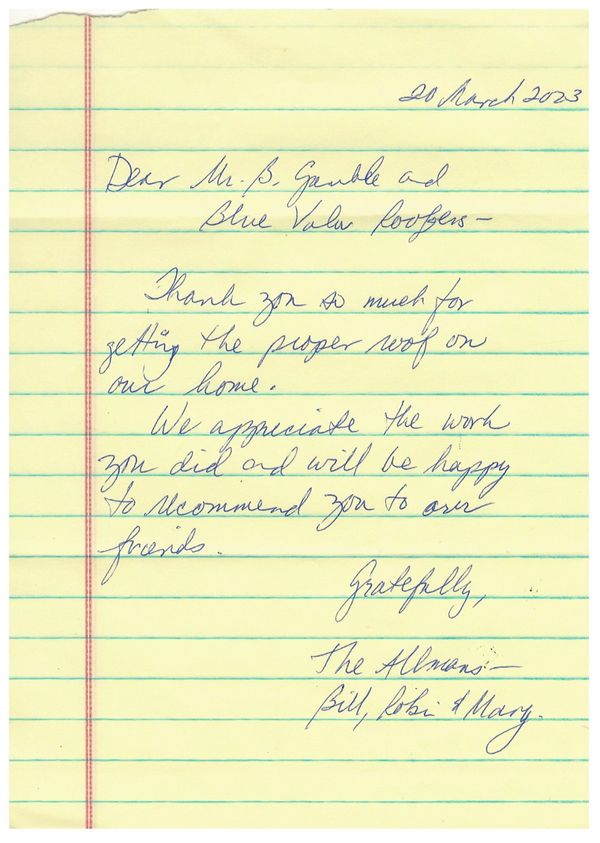 20 March 2023
Dear Mr. B. Gamble and
Blue Valor Roofers—
Thank you so much for
getting the proper roof on
our home.
We appreciate the work
you did and will be happy
to recommend you to our
friends.
Gratefully,
The Allmans:—
Bill, Robi & Mary.